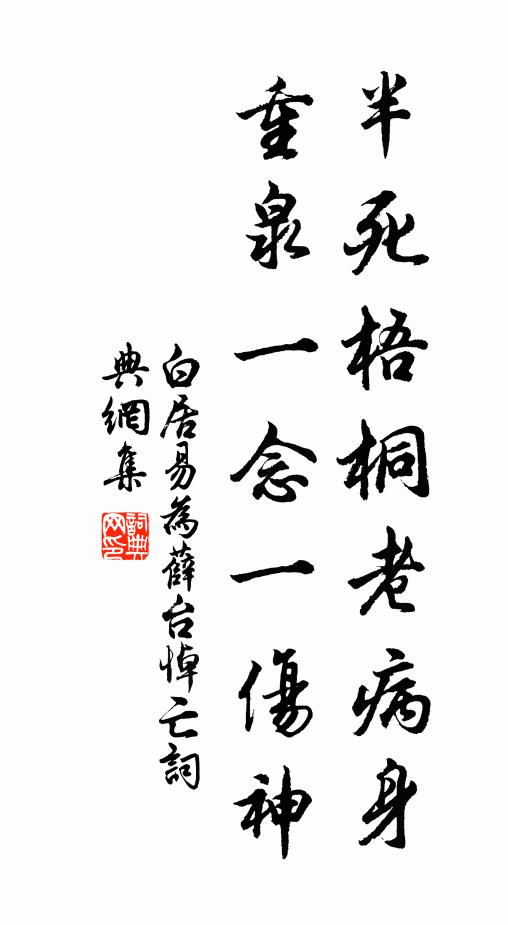 半死梧桐老病身
重泉一念一傷神
白居易為薛台悼亡詞
典網集
詞典網印